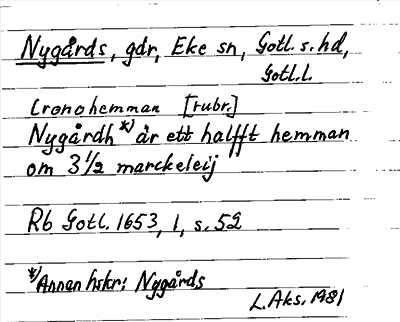 Nygårds, gdr, Eke sn, Gotl. s. hd,
Gotl. l.
Cronohemman [rubr.]
Nygårdh *) är ett halfft hemman
om 3 1/2 marckeleij
Rb Gotl. 1653, 1, s. 52
*) Annan hskr: Nygårds
L. Aks. 1981